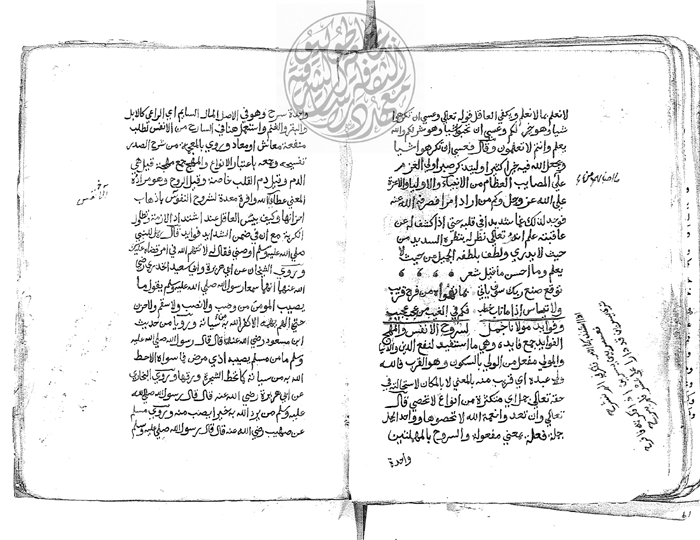 لانعلم مالانعلم ويكفي العاقل قوله تعالي وعسي ان تكرهوا
شيأ وهو خير لكم وعسي ان تحبوا شيأ وهو شر لكم والله
يعلم وانتم لاتعلمون وقال فعسي ان تكرهوا شيأ
ويجعل الله فيه خيرا كثيرا وليتذكر صبر اولي العزم
علي المصايب العظام من الانبياء والاولياء والاعزة
علي الله عز وجل وكم من اراد امرا فصرفه الله عنه
فوجد لذلك غما شديدا في قلبه حتي اذا كشف له عن
عاقبته علم ان الله تعالي نظر له بنظره السديد من
حيث لايدري ولطف بلطفه الجميل من حيث لا
يعلم وما احسن ما قيل شعر
توقع صنع ربك سوف ياتي بما تهواه من فرج قريب
ولا تياس اذا ما ناب خطب فكم في الغيب من عجب عجيب
وفوايد مولانا جمل لسروح الانفس والمهج
الفوايد جمع فايدة وهي ما استفيد لنفع الدين والدنيا
والمولي مفعل من الولي بالسكون وهو القرب فالله
ولاعبده اي قريب منه بالمعني لا بالمكان لاستحالته في
حقه تعالي جمل اي متكثرة من انواع لاتحصي قال
تعالي وان تعدوا نعمة الله لاتحصوها وواحد الجمل
جملة فعلة بمعني مفعولة والسروح بالمهملتين
واحدة
واحدة سرح وهو في الاصل المال السايم اي الراعي كالابل
والبقر والغنم واستعمل هنا في السارح من الانفس لطلب
منفعة معاش او معاد وروي بالمعجمة من شرح الصدر
تفسيحه وجمعه باعتبار الانواع والمهج جمع مهجة قيل هي
الدم وقيل دم القلب خاصة وقيل الروح وهو مراده
المعني عطايا الله وافرة معدة لسروح النفوس باذهاب
احزانها وكيف يضيق العاقل عند اشتداد الازمة
الكربة مع ان في ضمن الشدايد فوايد قال رجل للنبي
صلي الله عليه وسلم اوصني فقال له لا تتهم الله في امر قضاه عليك
وروي الشيخان عن ابي هريرة وابي سعيد الخدري رضي
الله عنهما انهما سمعا رسول الله صلي الله عليه وسلم يقول ما
يصيب المؤمن من وصب ولا نصب ولا سقم ولا حزن
حتي الهم يهمه الا كفر الله به سياته ورويا من حديث
ابن مسعود رضي الله عنه قال قال رسول الله صلي الله عليه
وسلم ما من مسلم يصيبه اذي مرض فما سواه الا حط
الله به من سياته كما تحط الشجرة ورقها وروي البخاري
عن ابي هريرة رضي الله عنه قال قال رسول الله صلي الله
عليه وسلم من يرد الله به خيرا يصب منه وروي مسلم
عن صهيب رضي الله عنه قال قال رسول الله صلي الله عليه وسلم